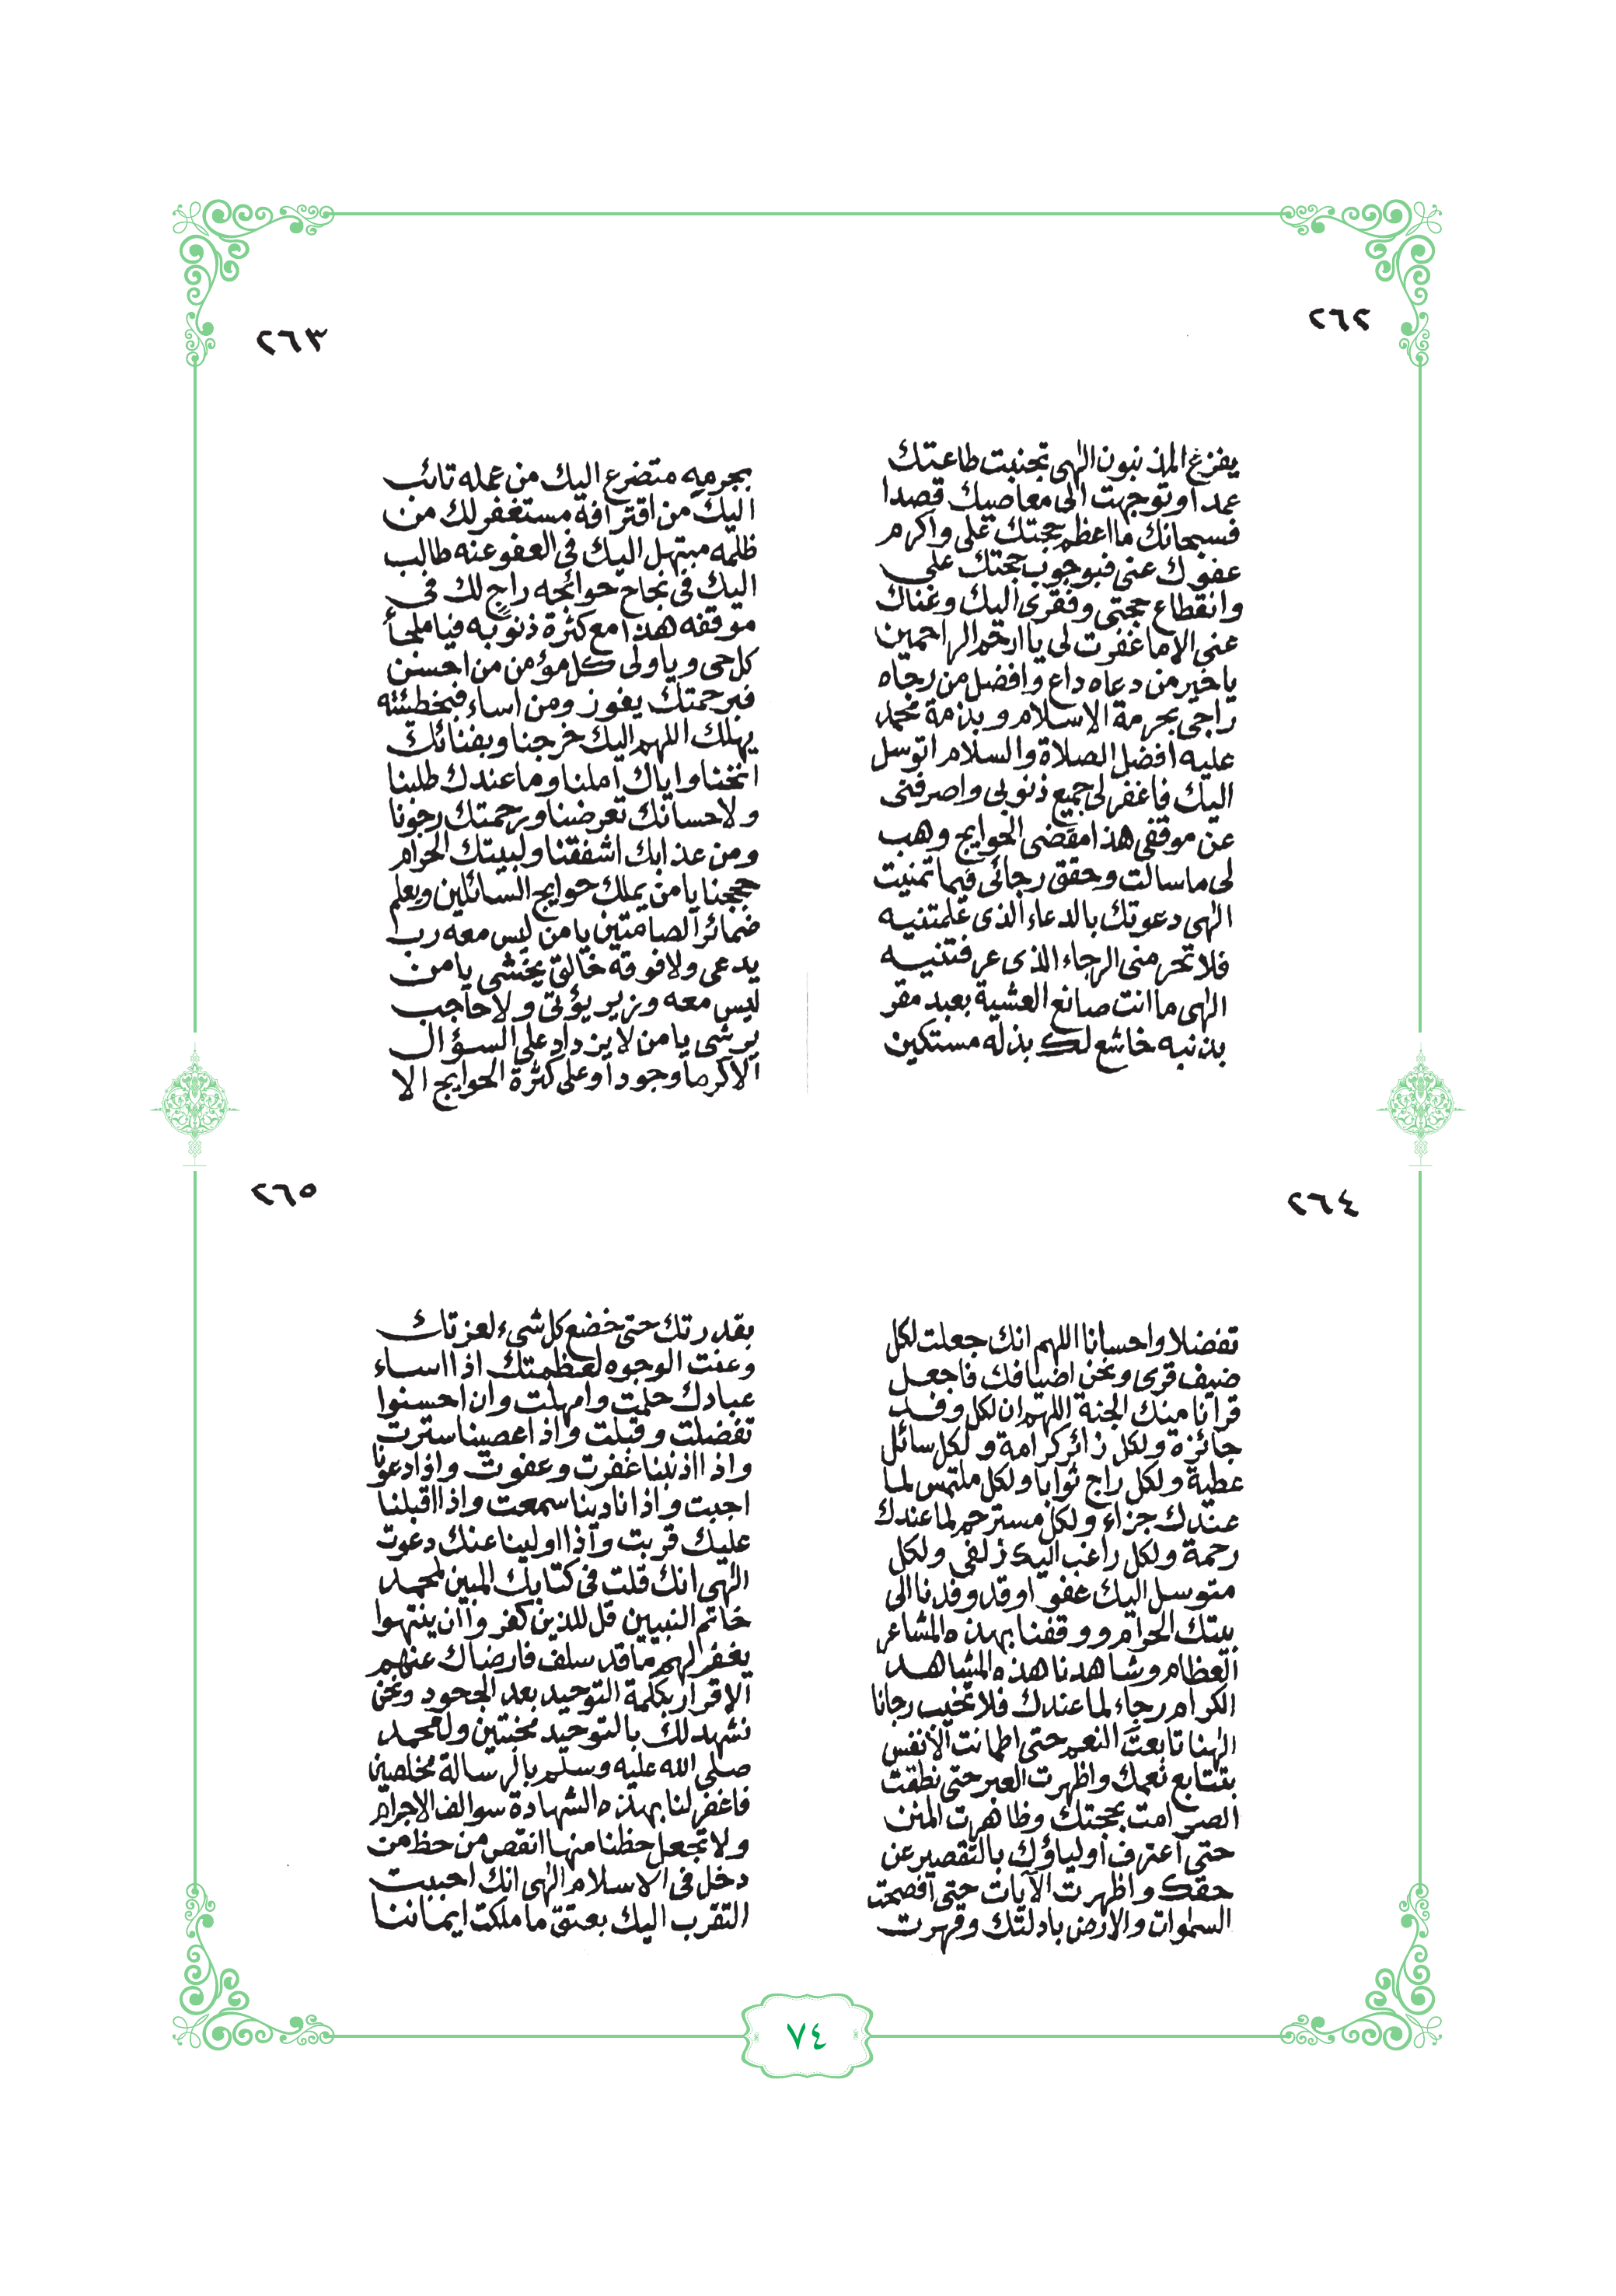 ٢٦٢
يفزع المذنبون الهى تجنبت طاعتك
عمدا وتوجهت الى معاصيك قصدا
فسبحانك ما اعظم حجتك على واكرم
عفوك عنى فبوجوب حجتك على
وانقطاع حجتى وفقرى اليك وغناك
عنى الا ما غفرت لى يا ارحم الراحمين
يا خير من دعاه داع وافضل من رجاه
راجى بحرمة الاسلام وبذمة محمد
عليه افضل الصلاة والسلام اتوسل
اليك فاغفر لى جميع ذنوبى واصرفنى
عن موقفى هذا مقضى الحوايج وهب
لى ما سالت وحقق رجائى فيما تمنيت
الهى دعوتك بالدعاء الذى علمتنيه
فلا تحرمنى الرجاء الذى عرفتنيه
الهى ما انت صانع العشية بعبد مقر
بذنبه خاشع لك بذله مستكين
٢٦٣
بجرمه متضرع اليك من عمله تائب
اليك من اقترافه مستغفر لك من
ظلمه مبتهل اليك فى العفو عنه طالب
اليك فى نجاح حوائجه راج لك فى
موقفه هذا مع كثرة ذنوبه فيا ملجأ
كل حى ويا ولى كل مؤمن من احسن
فبرحمتك يفوز ومن اساء فبخطيئته
يهلك اللهم اليك خرجنا وبفنائك
انخنا واياك املنا وما عندك طلبنا
ولاحسانك تعرضنا ورحمتك رجونا
ومن عذابك اشفقنا ولبيتك الحرام
حججنا يا من يملك حوايج السائلين ويعلم
ضمائر الصامتين يا من ليس معه رب
يدعى ولا فوقه خالق يخشى يا من
ليس معه وزير يؤتى ولا حاجب
يرشى يا من لا يزداد على السؤال
الا كرما وجودا وعلى كثرة الحوايج الا
٢٦٤
تفضلا واحسانا اللهم انك جعلت لكل
ضيف قرى ونحن اضيافك فاجعل
قرانا منك الجنة اللهم ان لكل وفد
جائزة ولكل زائر كرامة ولكل سائل
عطية ولكل راج ثوابا ولكل ملتمس لما
عندك جزاء ولكل مسترحم لما عندك
رحمة ولكل راغب اليك زلفى ولكل
متوسل اليك عفوا وقد وفدنا الى
بيتك الحرام ووقفنا بهذه المشاعر
العظام وشاهدنا هذه المشاهد
الكرام رجاء لما عندك فلا تخيب رجانا
الهنا تابعت النعم حتى اطمانت الانفس
بتتابع نعمك واظهرت العبر حتى نطقت
الصوامت بحجتك وظاهرت المنن
حتى اعترف اولياؤك بالتقصير عن
حقك واظهرت الآيات حتى افصحت
السموات والارض بادلتك وقهرت
٢٦٥
بقدرتك حتى خضع كل شىء لعزتك
وعنت الوجوه لعظمتك اذا اساء
عبادك حلمت وامهلت وان احسنوا
تفضلت وقبلت واذا عصينا سترت
واذا اذنبنا غفرت وعفوت واذا دعونا
اجبت واذا نادينا سمعت واذا اقبلنا
عليك قربت واذا اولينا عنك دعوت
الهى انك قلت فى كتابك المبين لمحمد
خاتم النبيين قل للذين كفروا ان ينتهوا
يغفر لهم ما قد سلف فارضاك عنهم
الاقرار بكلمة التوحيد بعد الجحود ونحن
نشهد لك بالتوحيد مخبتين ولمحمد
صلى الله عليه وسلم بالرسالة مخلصين
فاغفر لنا بهذه الشهادة سوالف الاجرام
ولا تجعل حظنا منها انقص من حظ من
دخل فى الاسلام الهى انك احببت
التقرب اليك بعتق ما ملكت ايماننا
٧٤